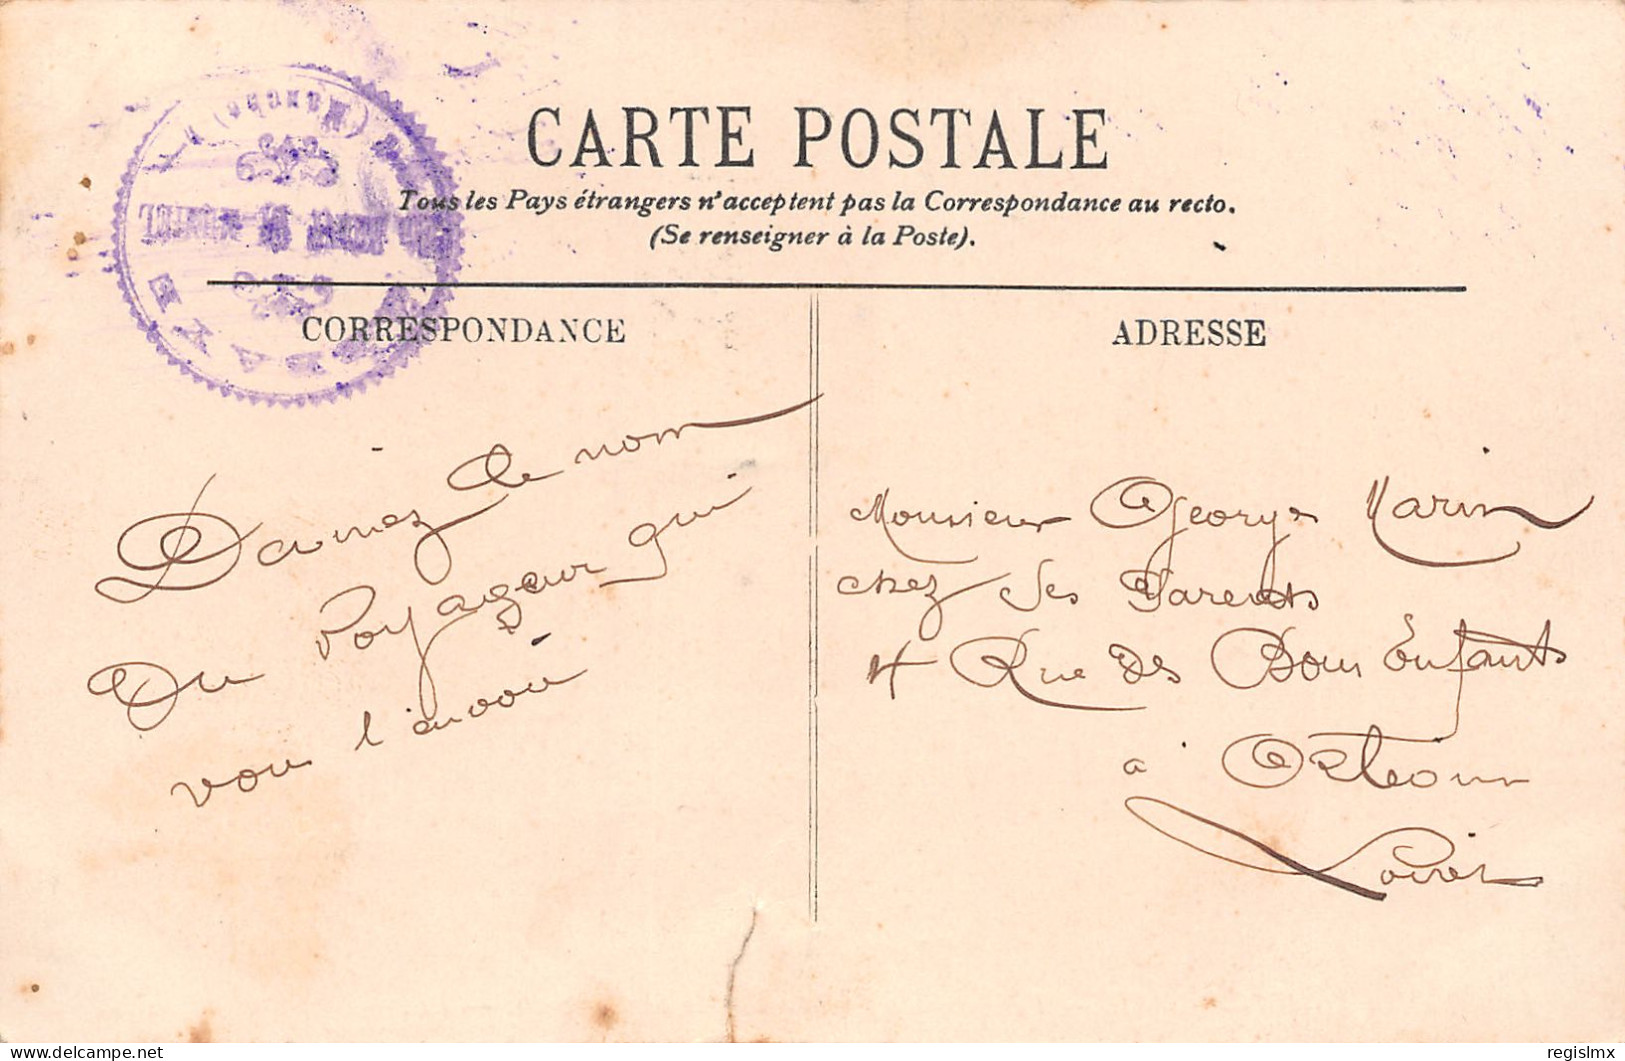 (Manche)
CARTE POSTALE
Tous les Pays étrangers n'acceptent pas la Correspondance au recto.
(Se renseigner à la Poste).
CORRESPONDANCE
ADRESSE
Devinez le nom
Du voyageur qui
vous l'envoie
Monsieur Georges Marin
chez Ses Parents
4 Rue des Bons Enfants
à Orléans
Loiret
delcampe.net
regislmx